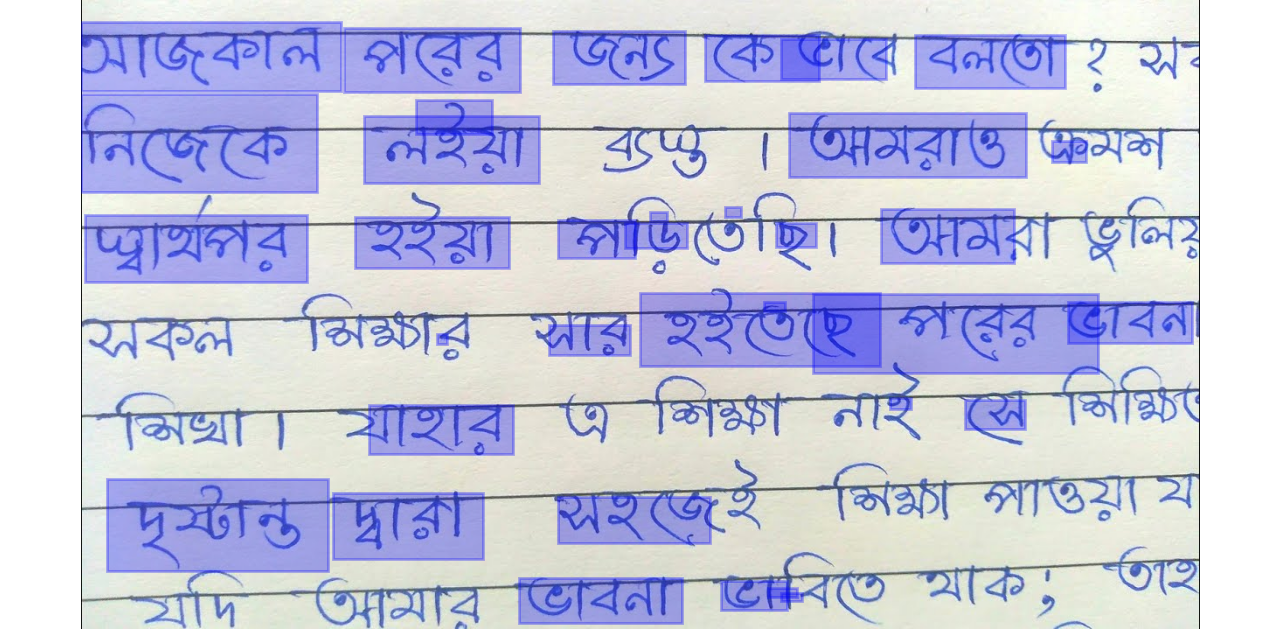 আজকাল পরের জন্য কে ভাবে বলতো ?
নিজেকে লইয়া ব্যস্ত । আমরাও ক্রমশ
স্বার্থপর হইয়া পড়িতেছি। আমরা
সকল শিক্ষার সার হইতেছে পরের ভাবনা
শিখা । যাহার এ শিক্ষা নাই সে
দৃষ্টান্ত দ্বারা সহজেই শিক্ষা পাওয়া
যদি আমার ভাবনা ভাবিতে থাক;